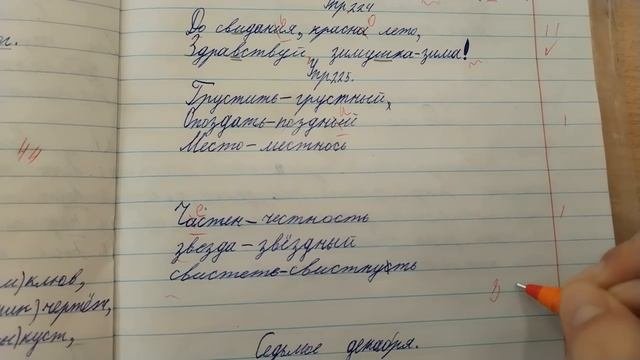 Упр 224
До свидания, красна лето,
Здравствуй, зимушка-зима!
Упр 225.
Грустить – грустный,
Опоздать – поздный
Место – местнось
44
Частен – честность
звезда – звёздный
свистеть – свистнуть
клюв,
чертёж,
куст,
Седьмое декабря.